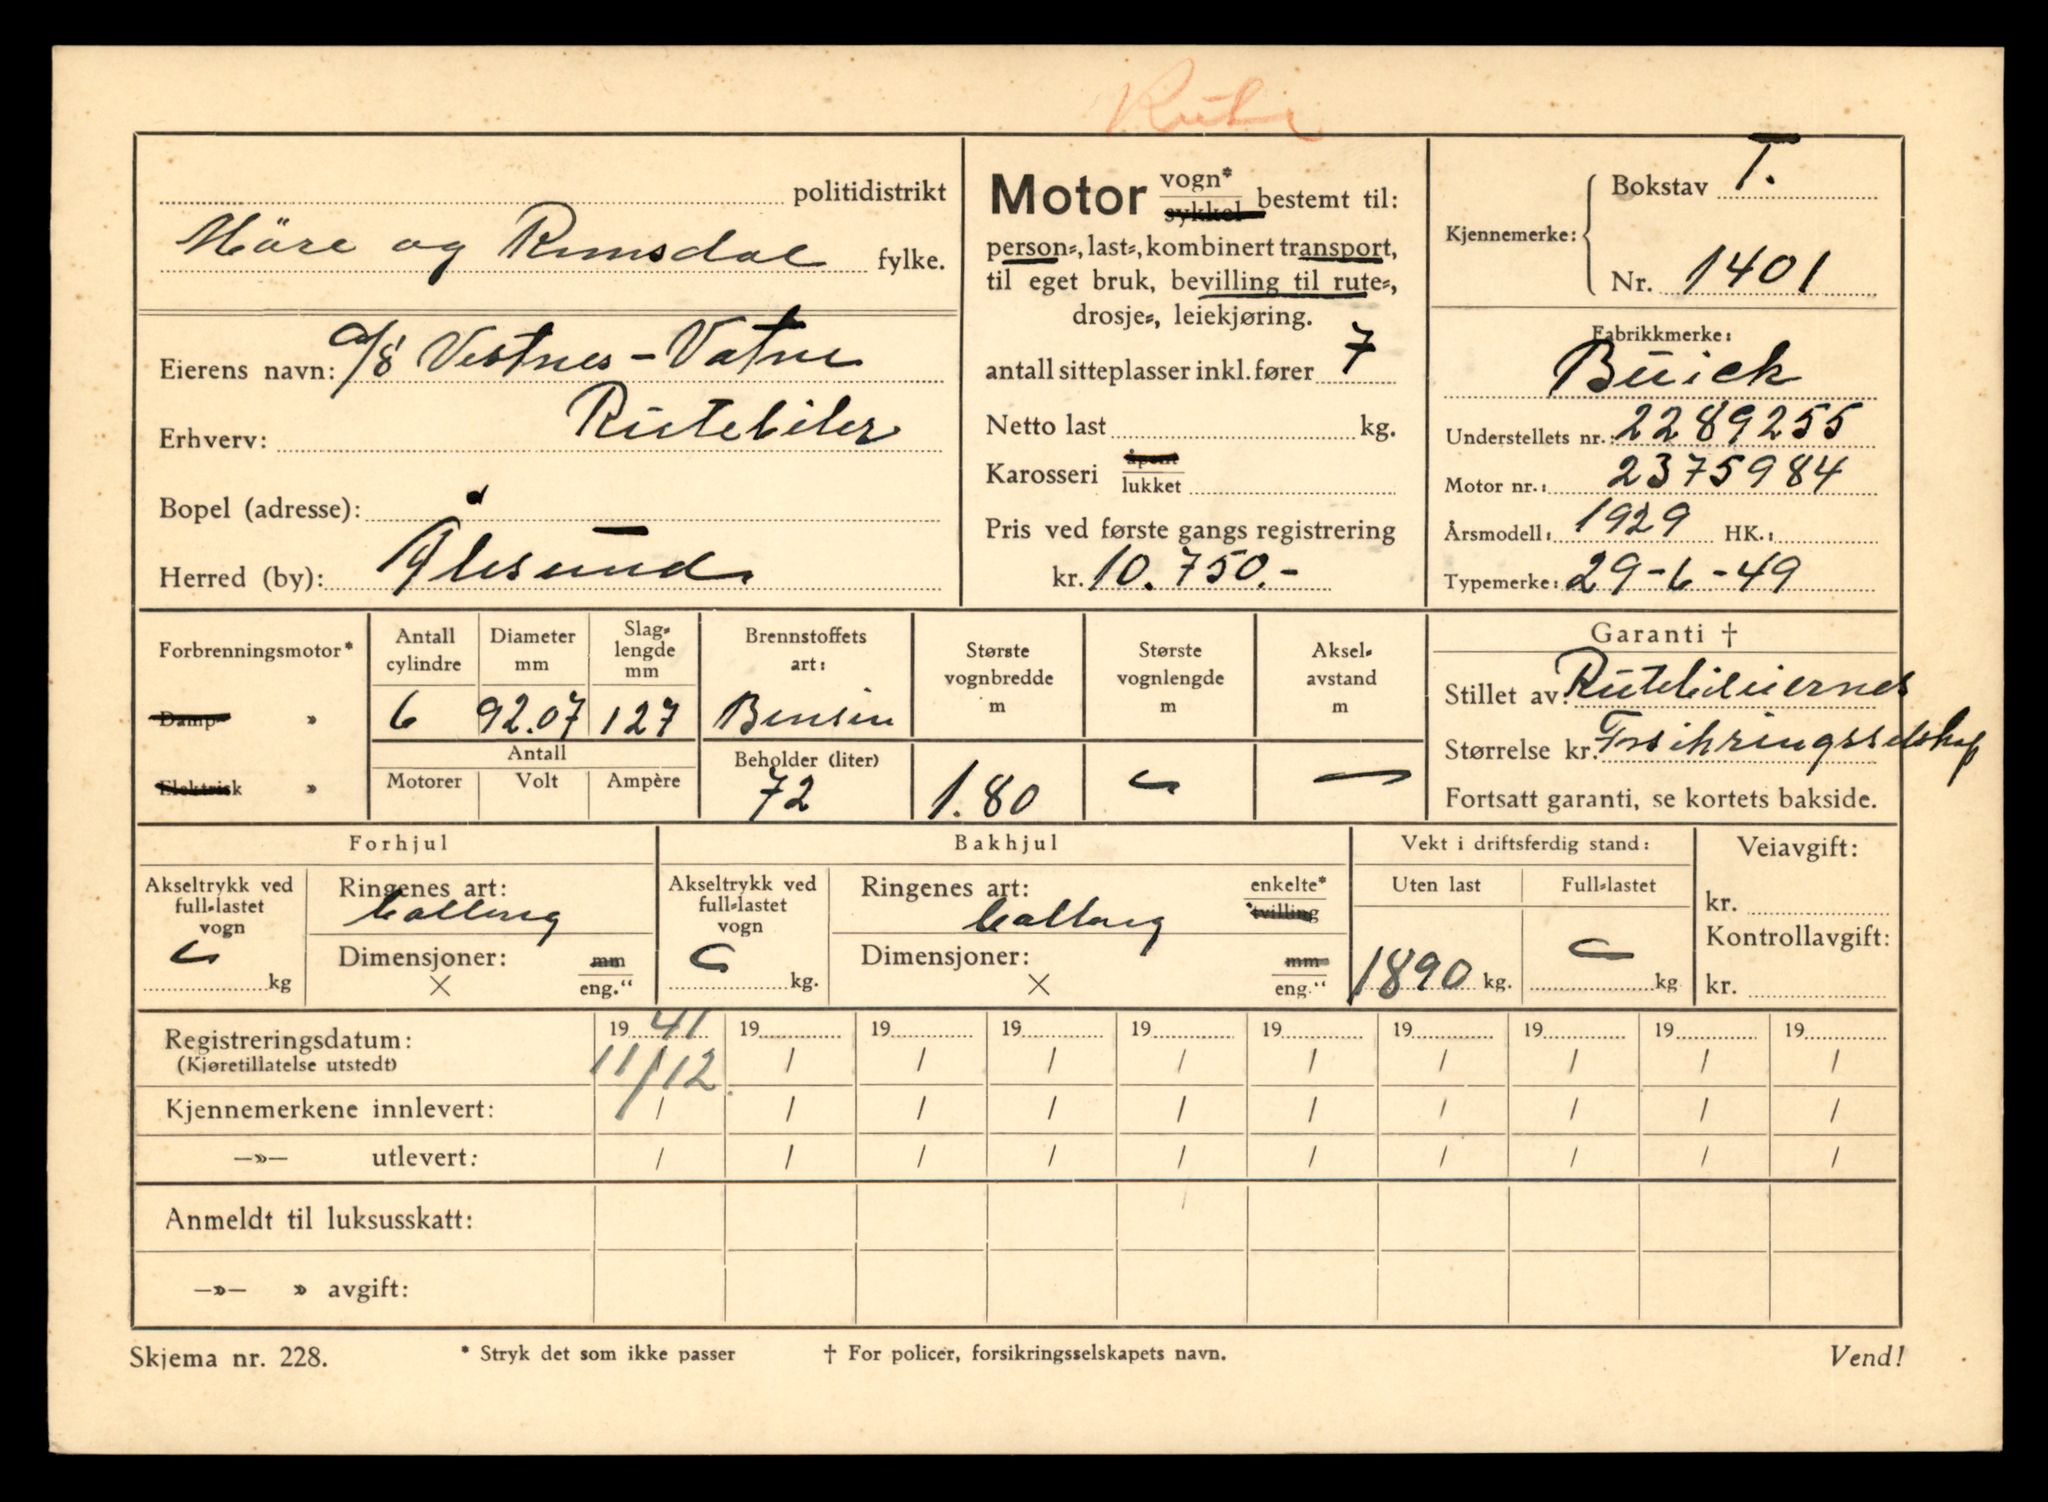 Rute
politidistrikt
Möre og Romsdal fylke.
Eierens navn: A/S Vestnes-Vatne
Rutebiler
Erhverv:
Bopel (adresse):
Herred (by): Ålesund
Motor vogn* sykkel bestemt til:
person-, last-, kombinert transport,
til eget bruk, bevilling til rute-,
drosje-, leiekjøring.
antall sitteplasser inkl. fører 7
Netto last kg.
Karosseri åpent lukket
Pris ved første gangs registrering
kr. 10.750.-
Kjennemerke: Bokstav T.
Nr. 1401
Fabrikkmerke:
Buick
Understellets nr.: 2289255
Motor nr.: 2375984
Årsmodell: 1929 HK.:
Typemerke: 29-6-49
Forbrenningsmotor*
Damp- »
Elektrisk »
Antall cylindre
6
Diameter mm
92.07
Slag-lengde mm
127
Antall
Motorer Volt Ampère
Brennstoffets art:
Bensin
Beholder (liter)
72
Største vognbredde m
1.80
Største vognlengde m
Aksel-avstand m
Garanti †
Stillet av: Rutebileiernes
Størrelse kr. Forsikringsselskap
Fortsatt garanti, se kortets bakside.
Forhjul
Akseltrykk ved full-lastet vogn
kg
Ringenes art:
ballong
Dimensjoner: mm eng.“
×
Bakhjul
Akseltrykk ved full-lastet vogn
kg.
Ringenes art: enkelte* tvilling
ballong
Dimensjoner: mm eng.“
×
Vekt i driftsferdig stand:
Uten last Full-lastet
1890 kg. kg
Veiavgift:
kr.
Kontrollavgift:
kr.
Registreringsdatum: 19 41 19 19 19 19 19 19 19 19 19
(Kjøretillatelse utstedt) 11/12 / / / / / / / / /
Kjennemerkene innlevert: / / / / / / / / / /
—»— utlevert: / / / / / / / / / /
Anmeldt til luksusskatt:
—»— » avgift:
Skjema nr. 228. * Stryk det som ikke passer † For policer, forsikringsselskapets navn. Vend!